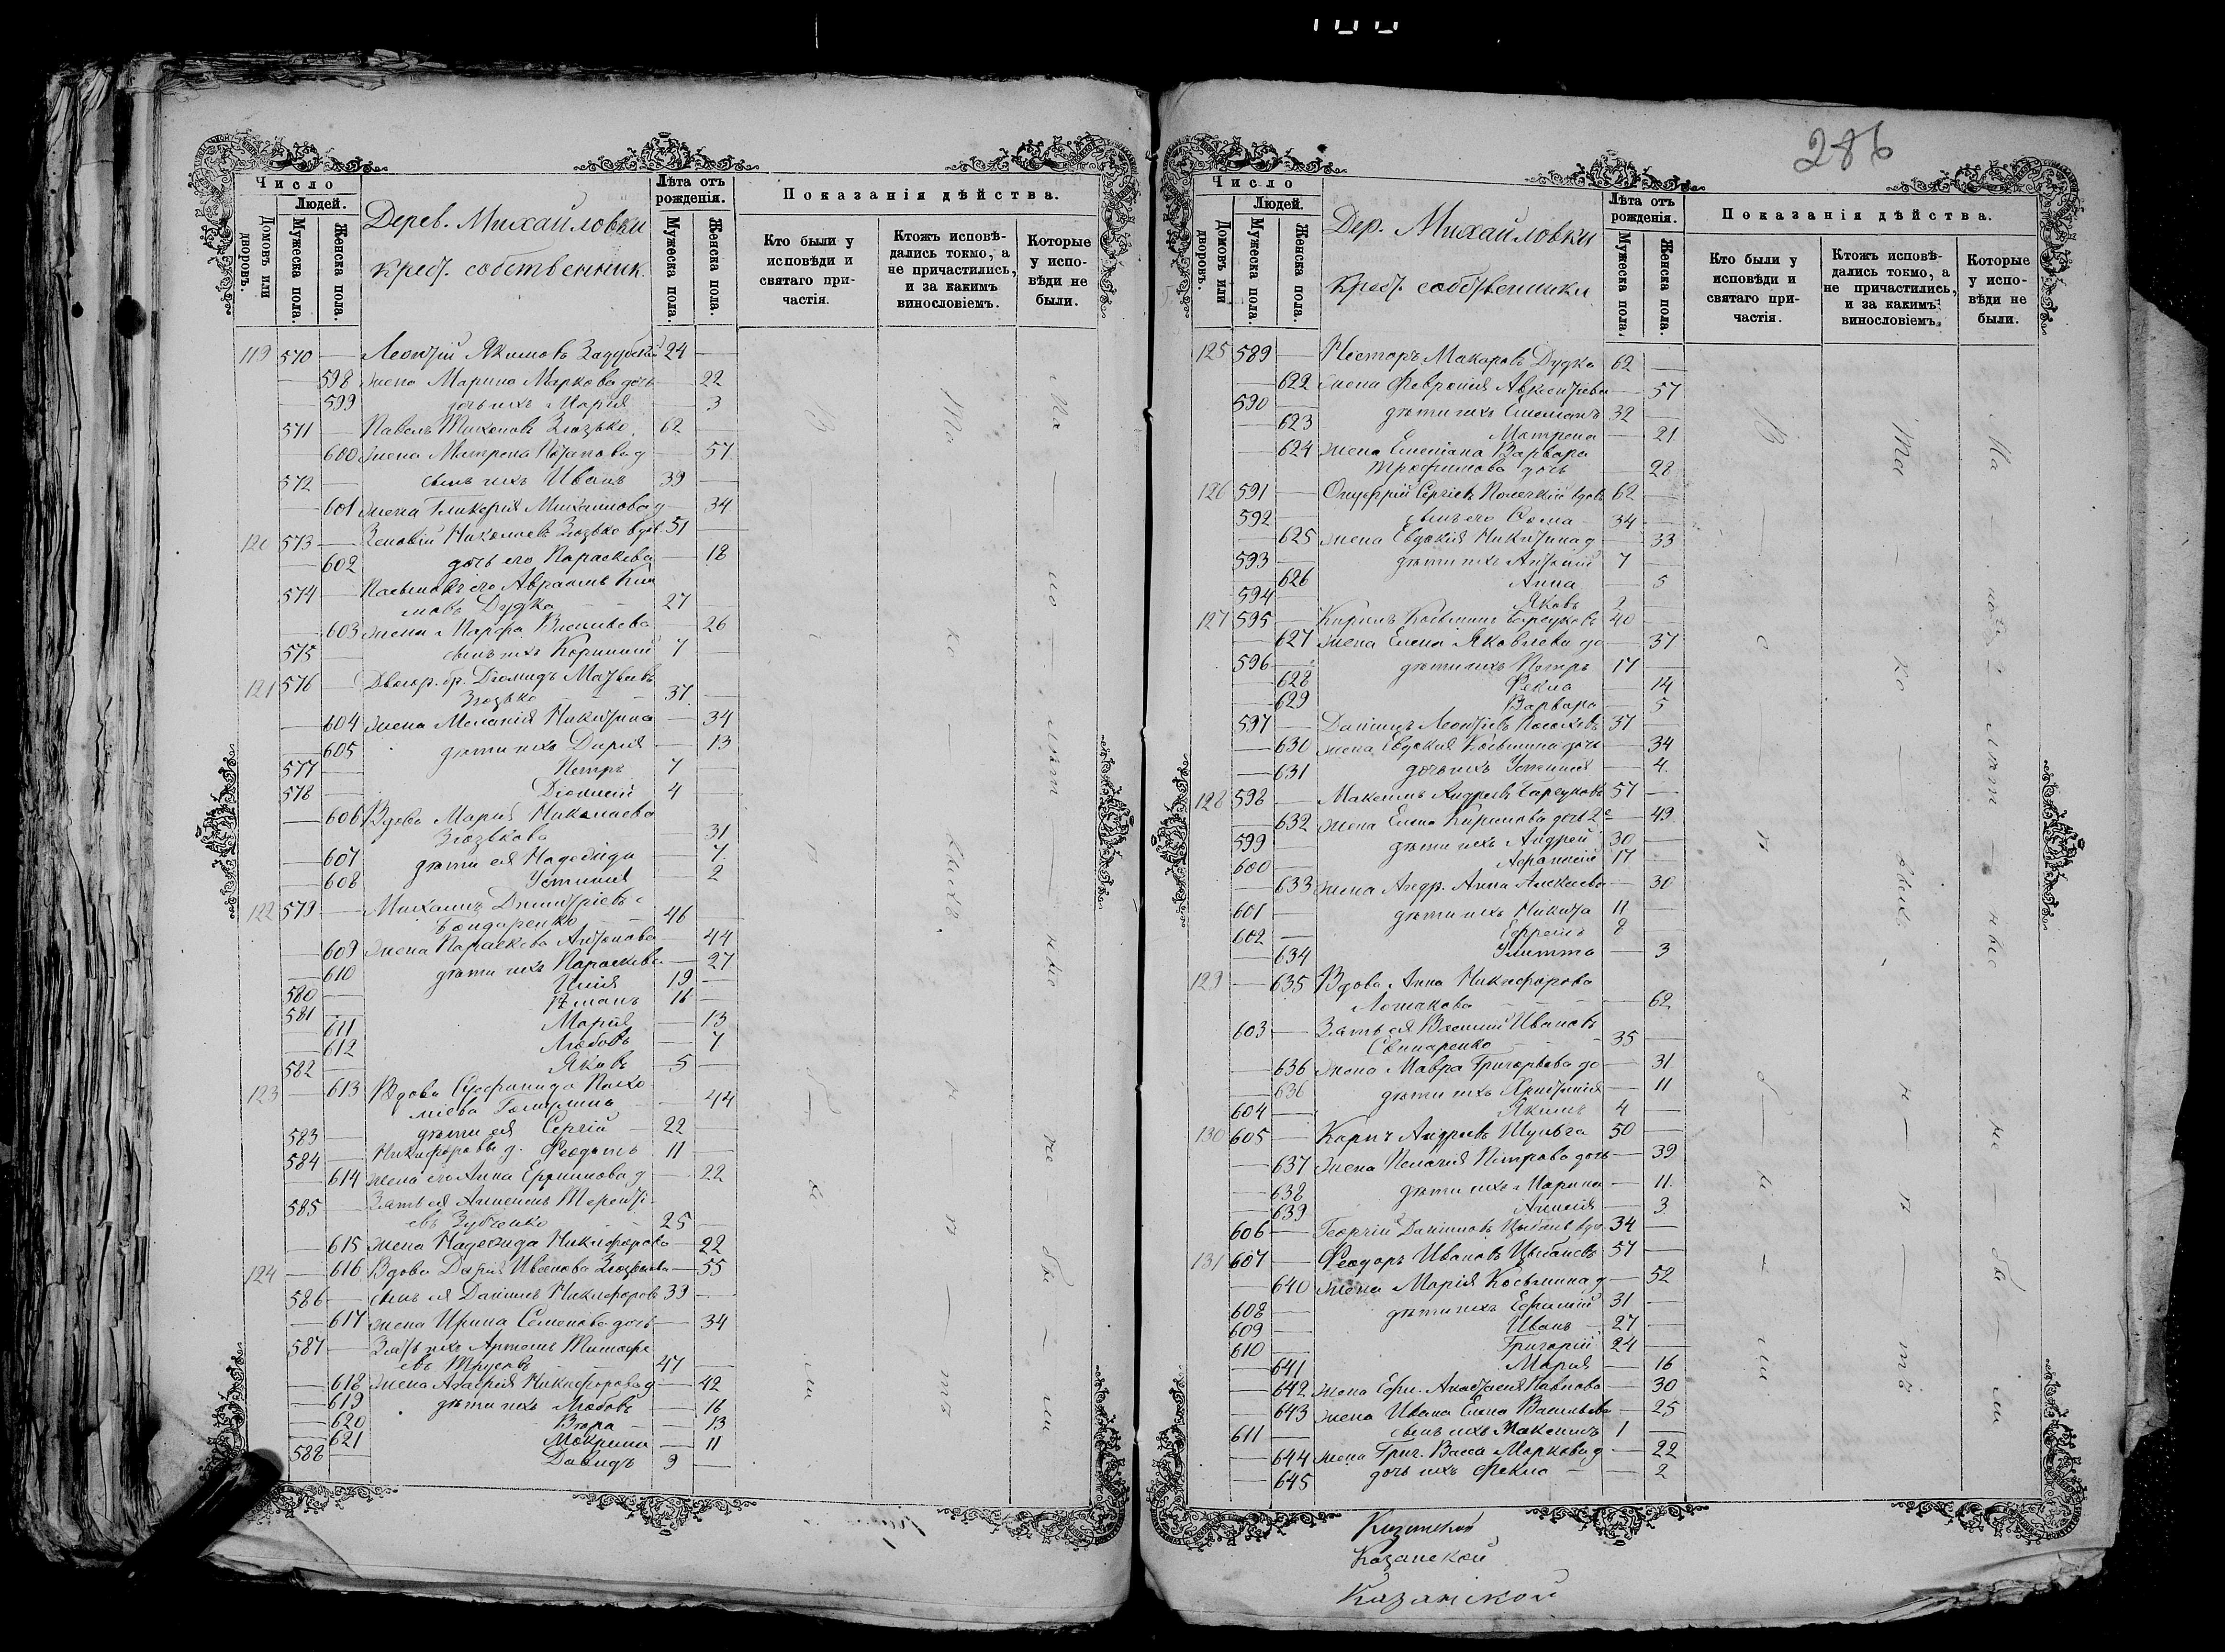 286
Число
Людей.
Домовъ или дворовъ.
Мужеска пола.
Женска пола.
Дерев. Михайловки
крест. собственник.
Лѣта отъ рожденія.
Мужеска пола.
Женска пола.
Показанія дѣйства.
Кто были у исповѣди и святаго причастія.
Ктожъ исповѣдались токмо, а не причастились, и за какимъ винословіемъ.
Которые у исповѣди не были.
119 570 — Леонтій Якимовъ 24 —
— 598 жена Марина Маркова дочь — 22
— 599 дочь ихъ Марія — 3
571 — Павелъ Тихоновъ Зюзько 62 —
600 жена Матрена д — 57
572 — сынъ ихъ Иванъ 39 —
— 601 жена Гликерія Михаилова д — 34
120 573 — Зеновій Николаевъ Зюзько вдов. 51 —
— 602 дочь его Параскева — 18
574 — Пасынокъ его Авраамъ Кли
мовъ Дудка 27 —
— 603 жена Марфа Васильева — 26
575 — сынъ ихъ Корнилій 7 —
121 576 — Двоюр. бр. Діомидъ Матвѣевъ
Зюзько 37 —
— 604 жена Меланія Никитина — 34
— 605 дѣти ихъ Дарія — 13
577 — Петръ 7 —
578 — 4 —
— 606 Вдова Марія Николаева
Зюзькова 31
— 607 дѣти ея Надежда — 7
— 608 Устинія — 2
122 579 — Михаилъ Димитріевъ
Бондаренко 46
— 609 жена Параскева Антонова — 44
— 610 дѣти ихъ Параскева — 27
580 — Илія 19 —
581 — Романъ 16 —
— 611 Марія — 13
— 612 Любовь — 7
582 — Яковъ 5 —
123 — 613 Вдова Стефанида Пахо
міева — 44
583 — дѣти ея Сергій 22 —
584 — Никифоровы д. Феодотъ 11 —
— 614 жена его Анна д — 22
585 — Зять ея Алексѣй Теренті
евъ Зубченко 25 —
— 615 жена Надежда Никифорова — 22
124 — 616 Вдова Дарія Иванова Зюзькова — 55
586 — сынъ ея Даніилъ Никифоровъ 39 —
— 617 жена Ирина Семенова дочь — 34
587 — Зять ихъ Артемъ Тимофе
евъ Трусовъ 47 —
— 618 жена Агафія Никифорова д — 42
— 619 дѣти ихъ Любовь — 16
— 620 Вѣра — 13
— 621 Макрина — 11
588 — Давидъ 9 —
Число
Людей.
Домовъ или дворовъ.
Мужеска пола.
Женска пола.
Дер. Михайловки
Крест. собственники
Лѣта отъ рожденія.
Мужеска пола.
Женска пола.
Показанія дѣйства.
Кто были у исповѣди и святаго причастія.
Ктожъ исповѣдались токмо, а не причастились, и за какимъ винословіемъ.
Которые у исповѣди не были.
125 589 — Несторъ Макаровъ Дудка 62 —
— 622 жена Февронія Авксентіева — 57
590 — дѣти ихъ Емеліанъ 32 —
— 623 Матрена — 21
— 624 жена Емеліана Варвара
Трофимова дочь — 28
126 591 — Онуфрій Сергіевъ вдов. 62 —
592 — сынъ его Фома 34 —
— 625 жена Евдокія Никитина д — 33
593 — дѣти ихъ Антоній 7 —
— 626 Анна — 5
594 — Яковъ 2 —
127 595 — Кирилъ Косьминъ 40 —
— 627 жена Елена Яковлева до — 37
596 — дѣти ихъ Петръ 17 —
— 628 Фекла — 14
— 629 Варвара — 5
597 — Даніилъ Леонтіевъ 37 —
— 630 жена Евдокія Косьмина дочь — 34
— 631 дочь ихъ Устинія — 4
128 598 — Максимъ Андреевъ 57 —
— 632 жена Елена Кирилова дочь 2е — 49
599 — дѣти ихъ Андрей 30 —
600 — Афанасій 17 —
— 633 жена Андр. Анна Алексѣева — 30
601 — дѣти ихъ Никита 11 —
602 — Ефремъ 8 —
— 634 Улитта — 3
129 — 635 Вдова Анна Никифорова
— 62
603 — Зять ея Василій Ивановъ
Свинаренко 35 —
— 636 жена Мавра Григорьева до — 31
— 636 дѣти ихъ Христинія — 11
604 — Якимъ 4 —
130 605 — Карпъ Андреевъ Шульга 50 —
— 637 жена Пелагія Петрова дочь — 39
— 638 дѣти ихъ Марина — 11
— 639 — 3
606 — Георгій Даніиловъ вдо. 34 —
131 607 — Феодоръ Ивановъ Цыбаневъ 57 —
— 640 жена Марія Косьмина д — 52
608 — дѣти ихъ Ефимій 31 —
609 — Иванъ 27 —
610 — Григорій 24 —
— 641 Марія — 16
— 642 жена Ефи. Анастасія Павлова — 30
— 643 жена Ивана Елена Васильева — 25
611 — сынъ ихъ Максимъ 1 —
— 644 жена Григ. Васса Маркова д — 22
— 645 дочь ихъ Фекла — 2
Казанской
Казанской
Казанской